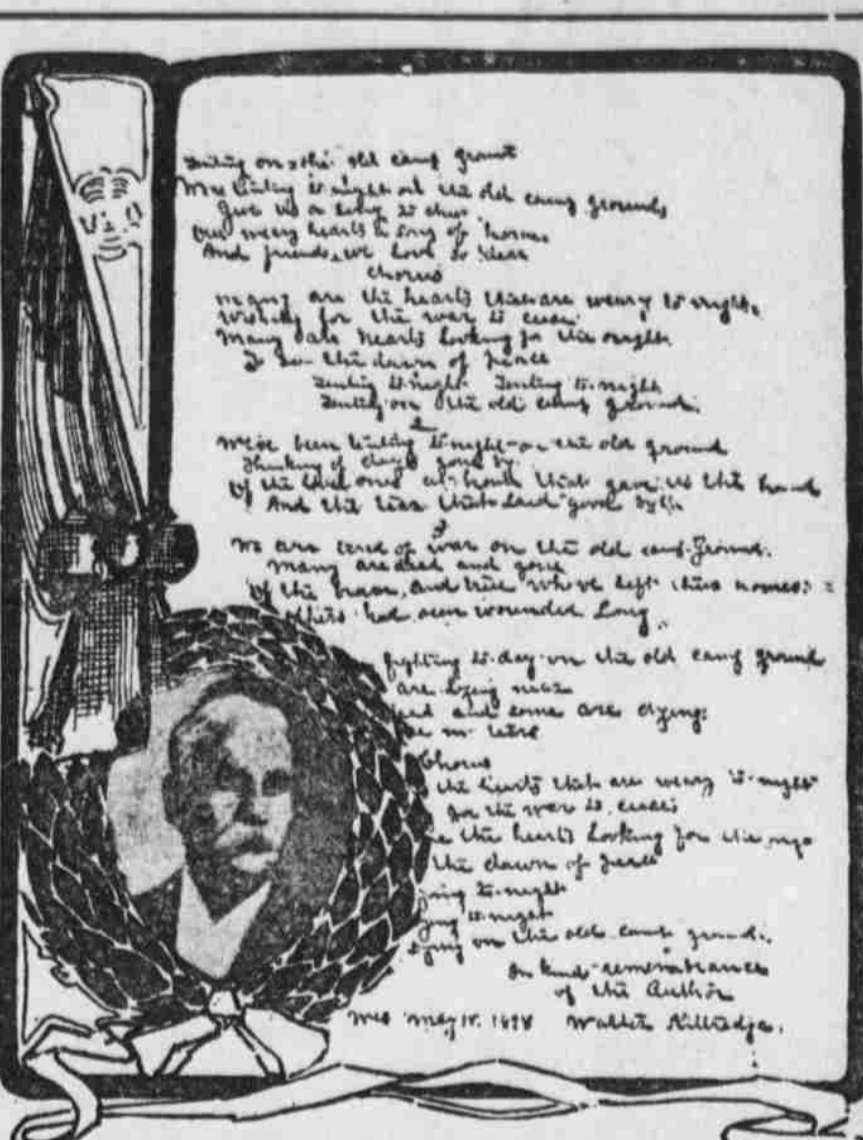 Tenting on the old camp ground
We're tenting to-night on the old camp ground,
Give us a song to cheer
Our weary hearts a song of home
And friends we love so dear
Chorus
Many are the hearts that are weary to-night,
Wishing for the war to cease
Many are hearts looking for the right
To see the dawn of peace
Tenting to-night Tenting to-night
Tenting on the old camp ground.
2
We've been tenting to-night on the old ground
Thinking of days gone by
Of the loved ones at home that gave us the hand
And the tear that said good bye.
3
We are tired of war on the old camp-ground.
Many are dead and gone
Of the brave, and true who've left their homes:
others had been wounded Long.
fighting to-day on the old camp ground
are lying near
and some are dying:
in tears
Chorus
the hearts that are weary to-night
for the war to cease
the hearts looking for the
the dawn of peace
to-night
to-night
on the old camp ground.
In kind remembrance
of the Author
Wed May 18. 1898 Walter Kittredge.